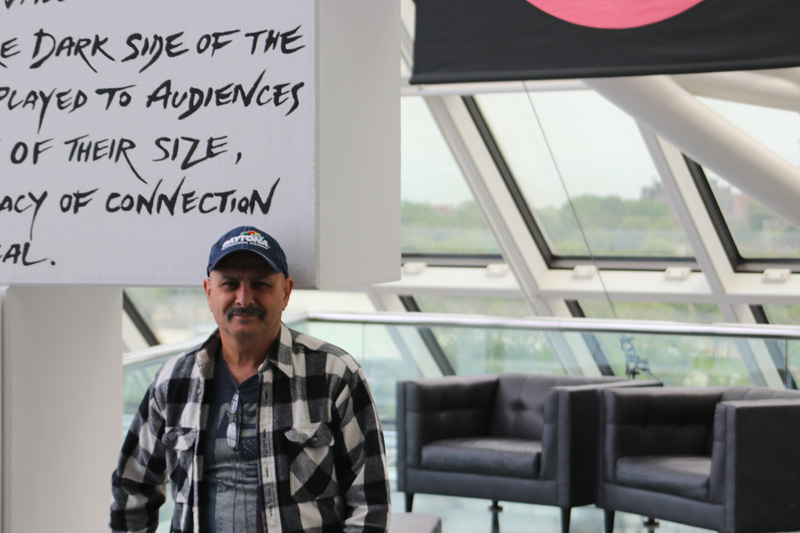 E DARK SIDE OF THE
PLAYED TO AUDIENCES
OF THEIR SIZE,
ACY OF CONNECTION
EAL.
DAYTONA